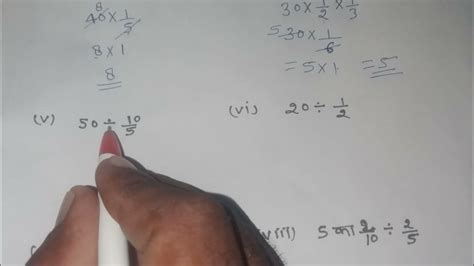 40 × 1/5
8
8 × 1
8
30 × 1/2 × 1/3
5 30 × 1/6
= 5 × 1 = 5
(v) 50 ÷ 10/5
(vi) 20 ÷ 1/2
5 का 2/10 ÷ 2/5